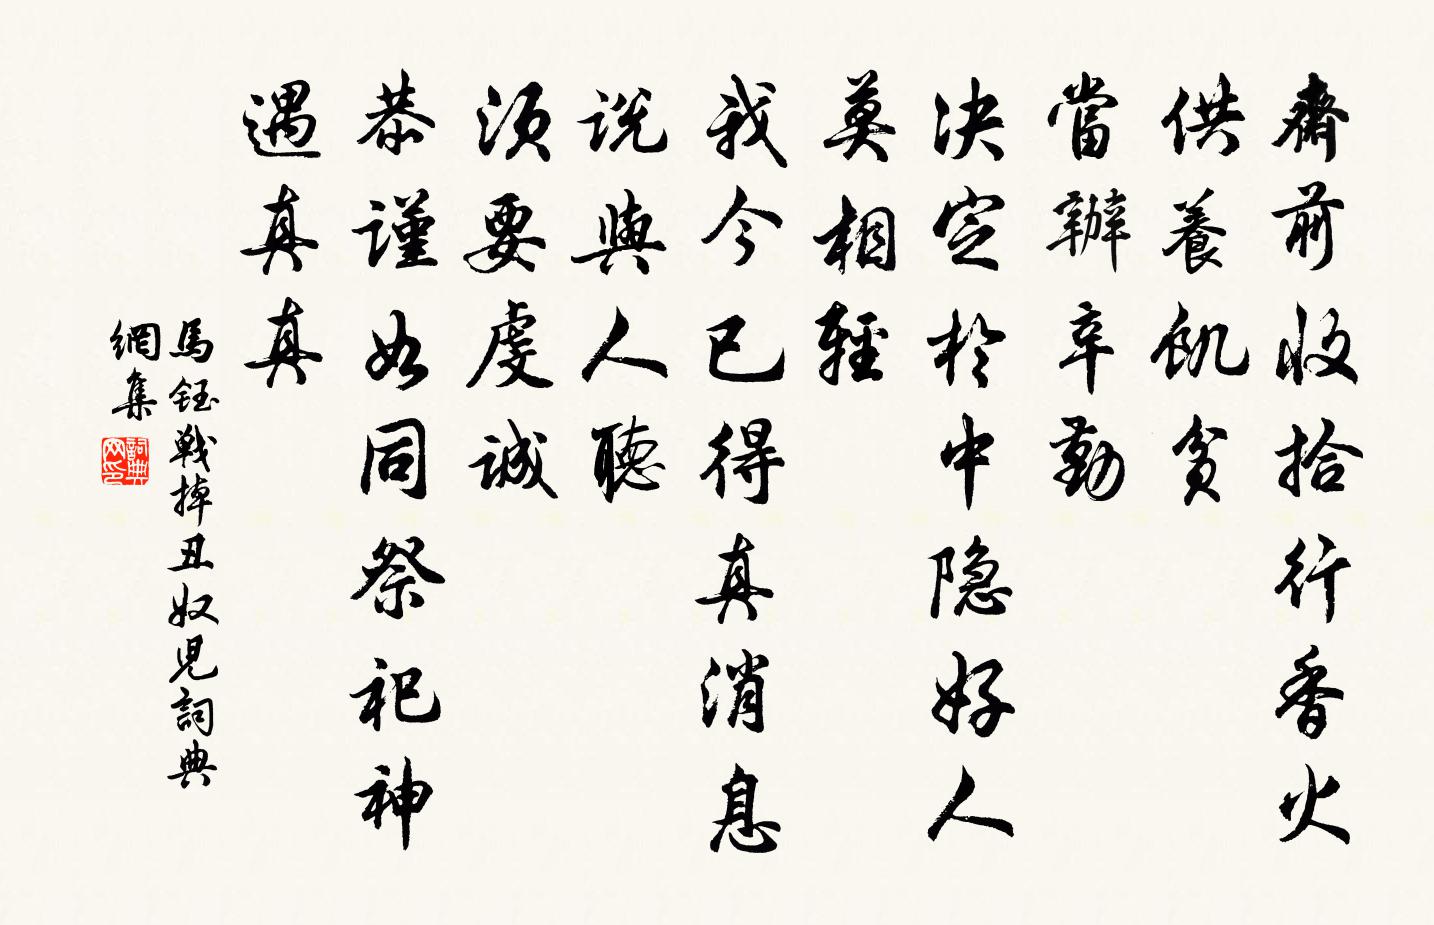 齋前收拾行香火
供養飢貧
當辦辛勤
決定於中隐好人
莫相輕
我今已得真消息
說與人聽
須要虔誠
恭謹如同祭祀神
遇真真
馬鈺戰掉丑奴兒詞典
網集
詞典
网印